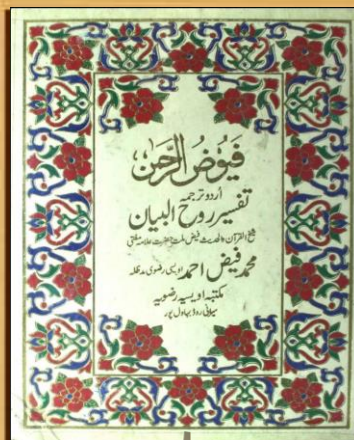 فیوض الرحمن
اردو ترجمہ
تفسیر روح البیان
شیخ القرآن والحدیث فیض ملت حضرت علامہ مفتی
محمد فیض احمد اویسی رضوی مدظلہ
مکتبہ اویسیہ رضویہ
سیرانی روڈ بہاول پور